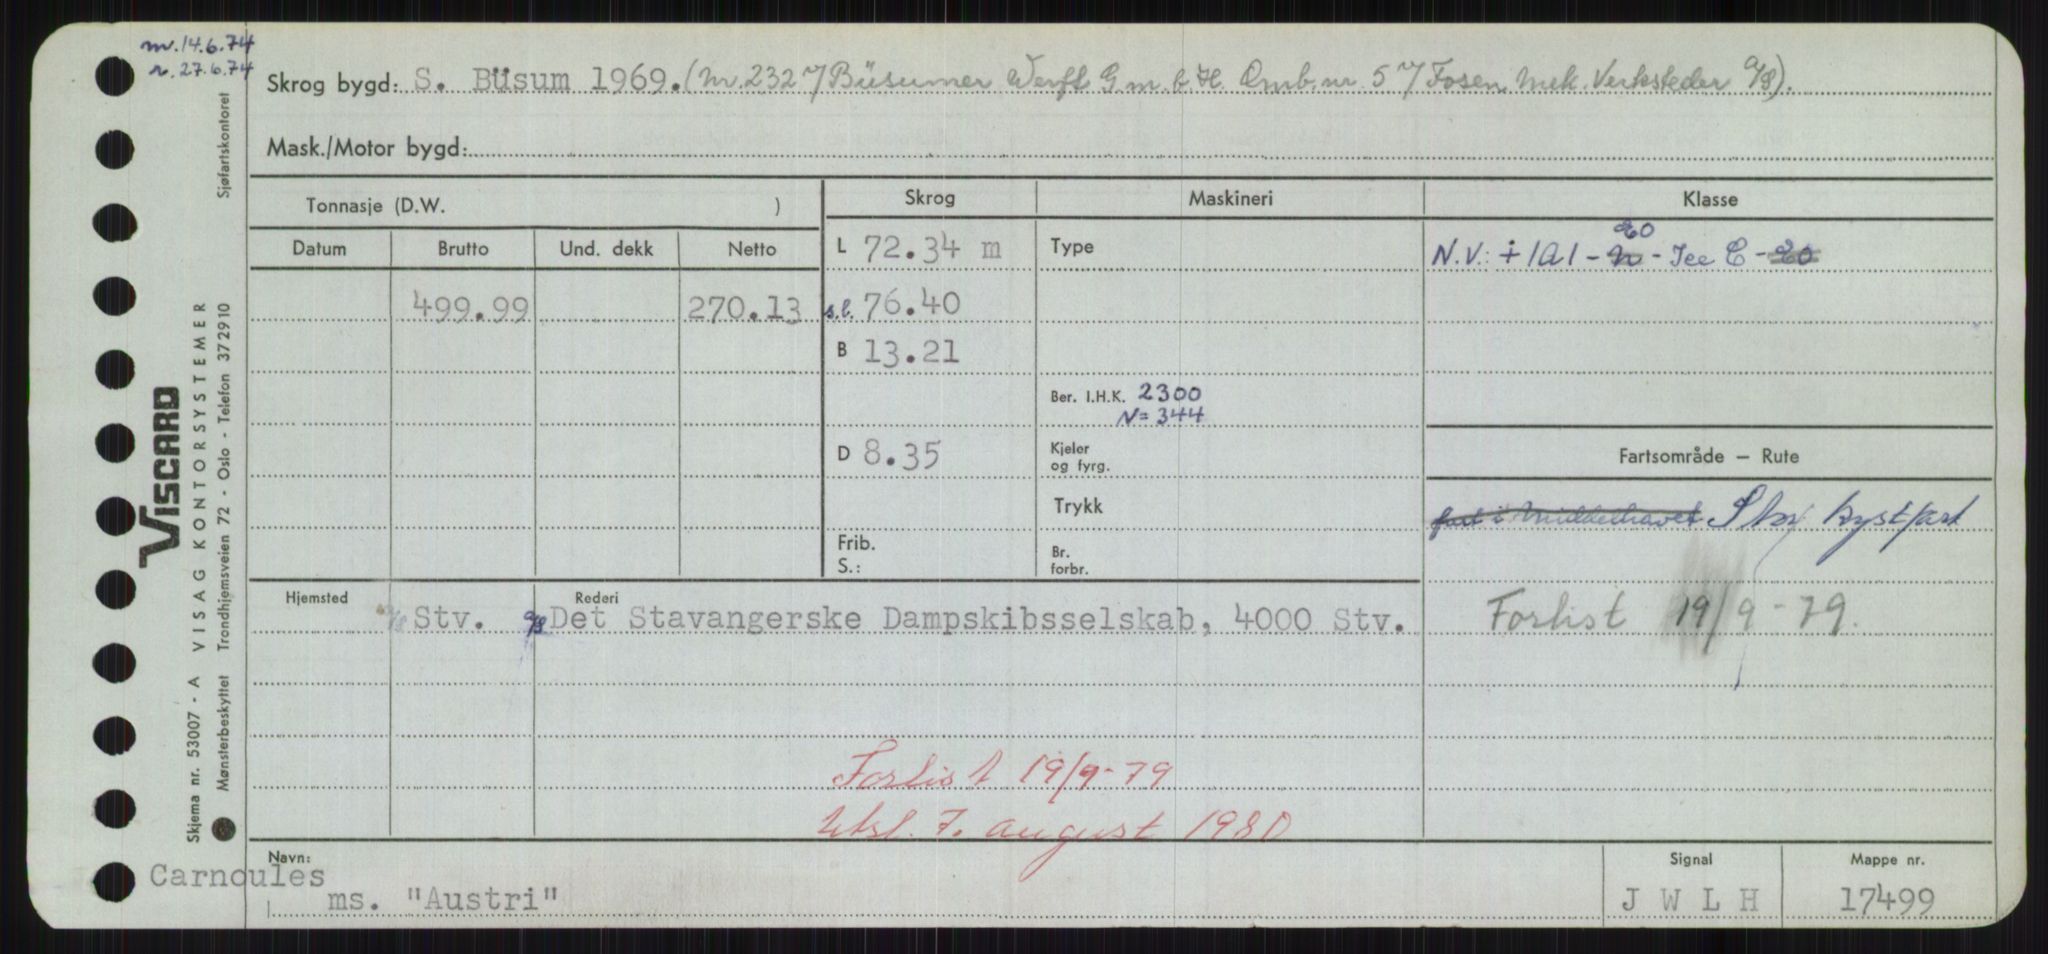 m. 14.6.74
r. 27.6.74
Skrog bygd: S. Büsum 1969. (Nr. 232 Büsumer Werft G.m.b.H. Omb.nr. 5 Fosen Mek. Verksteder A/S).
Mask./Motor bygd:
Sjøfartskontoret
Tonnasje (D.W. )
Skrog
Maskineri
Klasse
Datum Brutto Und. dekk Netto
499.99 270.13
L 72.34 m
s.l. 76.40
B 13.21
D 8.35
Frib.
S.:
Type
Ber. I.H.K. 2300
N = 344
Kjeler
og fyrg.
Trykk
Br.
forbr.
E0
N.V.: + 1A1 - - Ice C - E0
Fartsområde — Rute
fart i Middelhavet Stor kystfart
Forlist 19/9-79.
Hjemsted Rederi
Stv. A/S Det Stavangerske Dampskibsselskab, 4000 Stv.
Forlist 19/9-79
Utsl. 7. august 1980
VISCARD
Skjema nr. 53007 - A VISAG KONTORSYSTEMER
Mønsterbeskyttet Trondhjemsveien 72 - Oslo - Telefon 372910
Navn:
Carnoules
ms. "Austri"
Signal
J W L H
Mappe nr.
17499